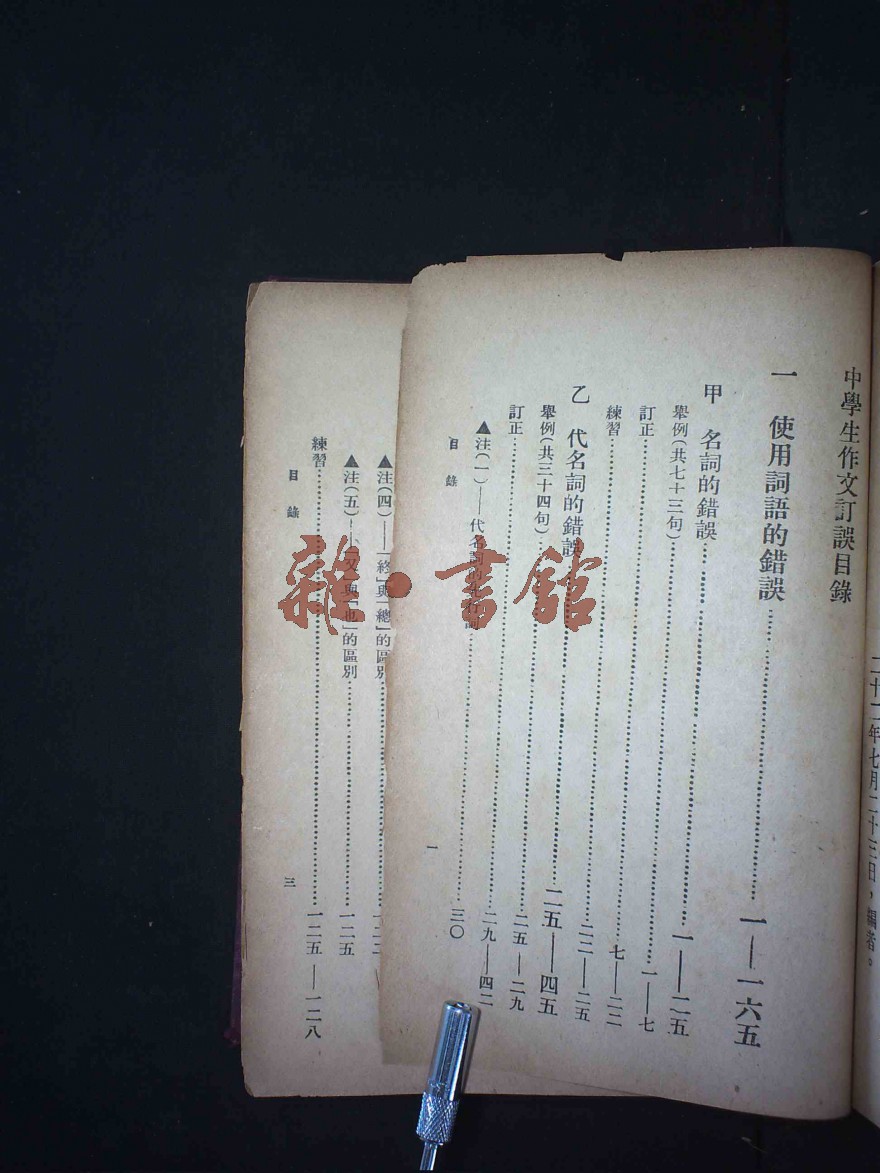 二十二年七月二十三日，編者。
中學生作文訂誤目錄
一 使用詞語的錯誤……一——一六五
甲 名詞的錯誤……一——二五
舉例(共七十三句)……一——七
訂正……七——二二
練習……二二——二五
乙 代名詞的錯誤……二五——四五
舉例(共三十四句)……二五——二九
訂正……二九——四二
▲注(一)——代名詞的先行詞……三〇
目錄 一
▲注(四)——「終」與「總」的區別……
▲注(五)——「又」與「也」的區別……一二五
練習……一二五——一二八
目錄 三
雜·書館